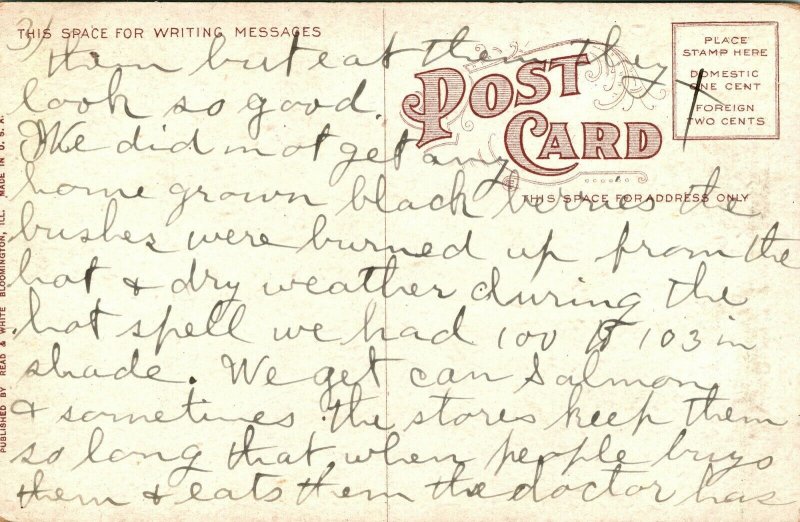 3)
THIS SPACE FOR WRITING MESSAGES
POST CARD
PLACE
STAMP HERE
DOMESTIC
ONE CENT
FOREIGN
TWO CENTS
THIS SPACE FOR ADDRESS ONLY
PUBLISHED BY READ & WHITE BLOOMINGTON, ILL. MADE IN U. S. A.
them but eat them they
look so good.
We did not get any
home grown black berries the
bushes were burned up from the
hot & dry weather during the
hot spell we had 100 to 103 in
shade. We get can Salmon
& sometimes the stores keep them
so long that when people buys
them & eats them the doctor has